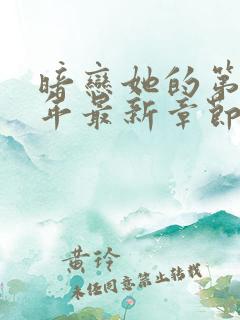 暗恋她的第
年最新章节
黄玲
未经同意禁止转载